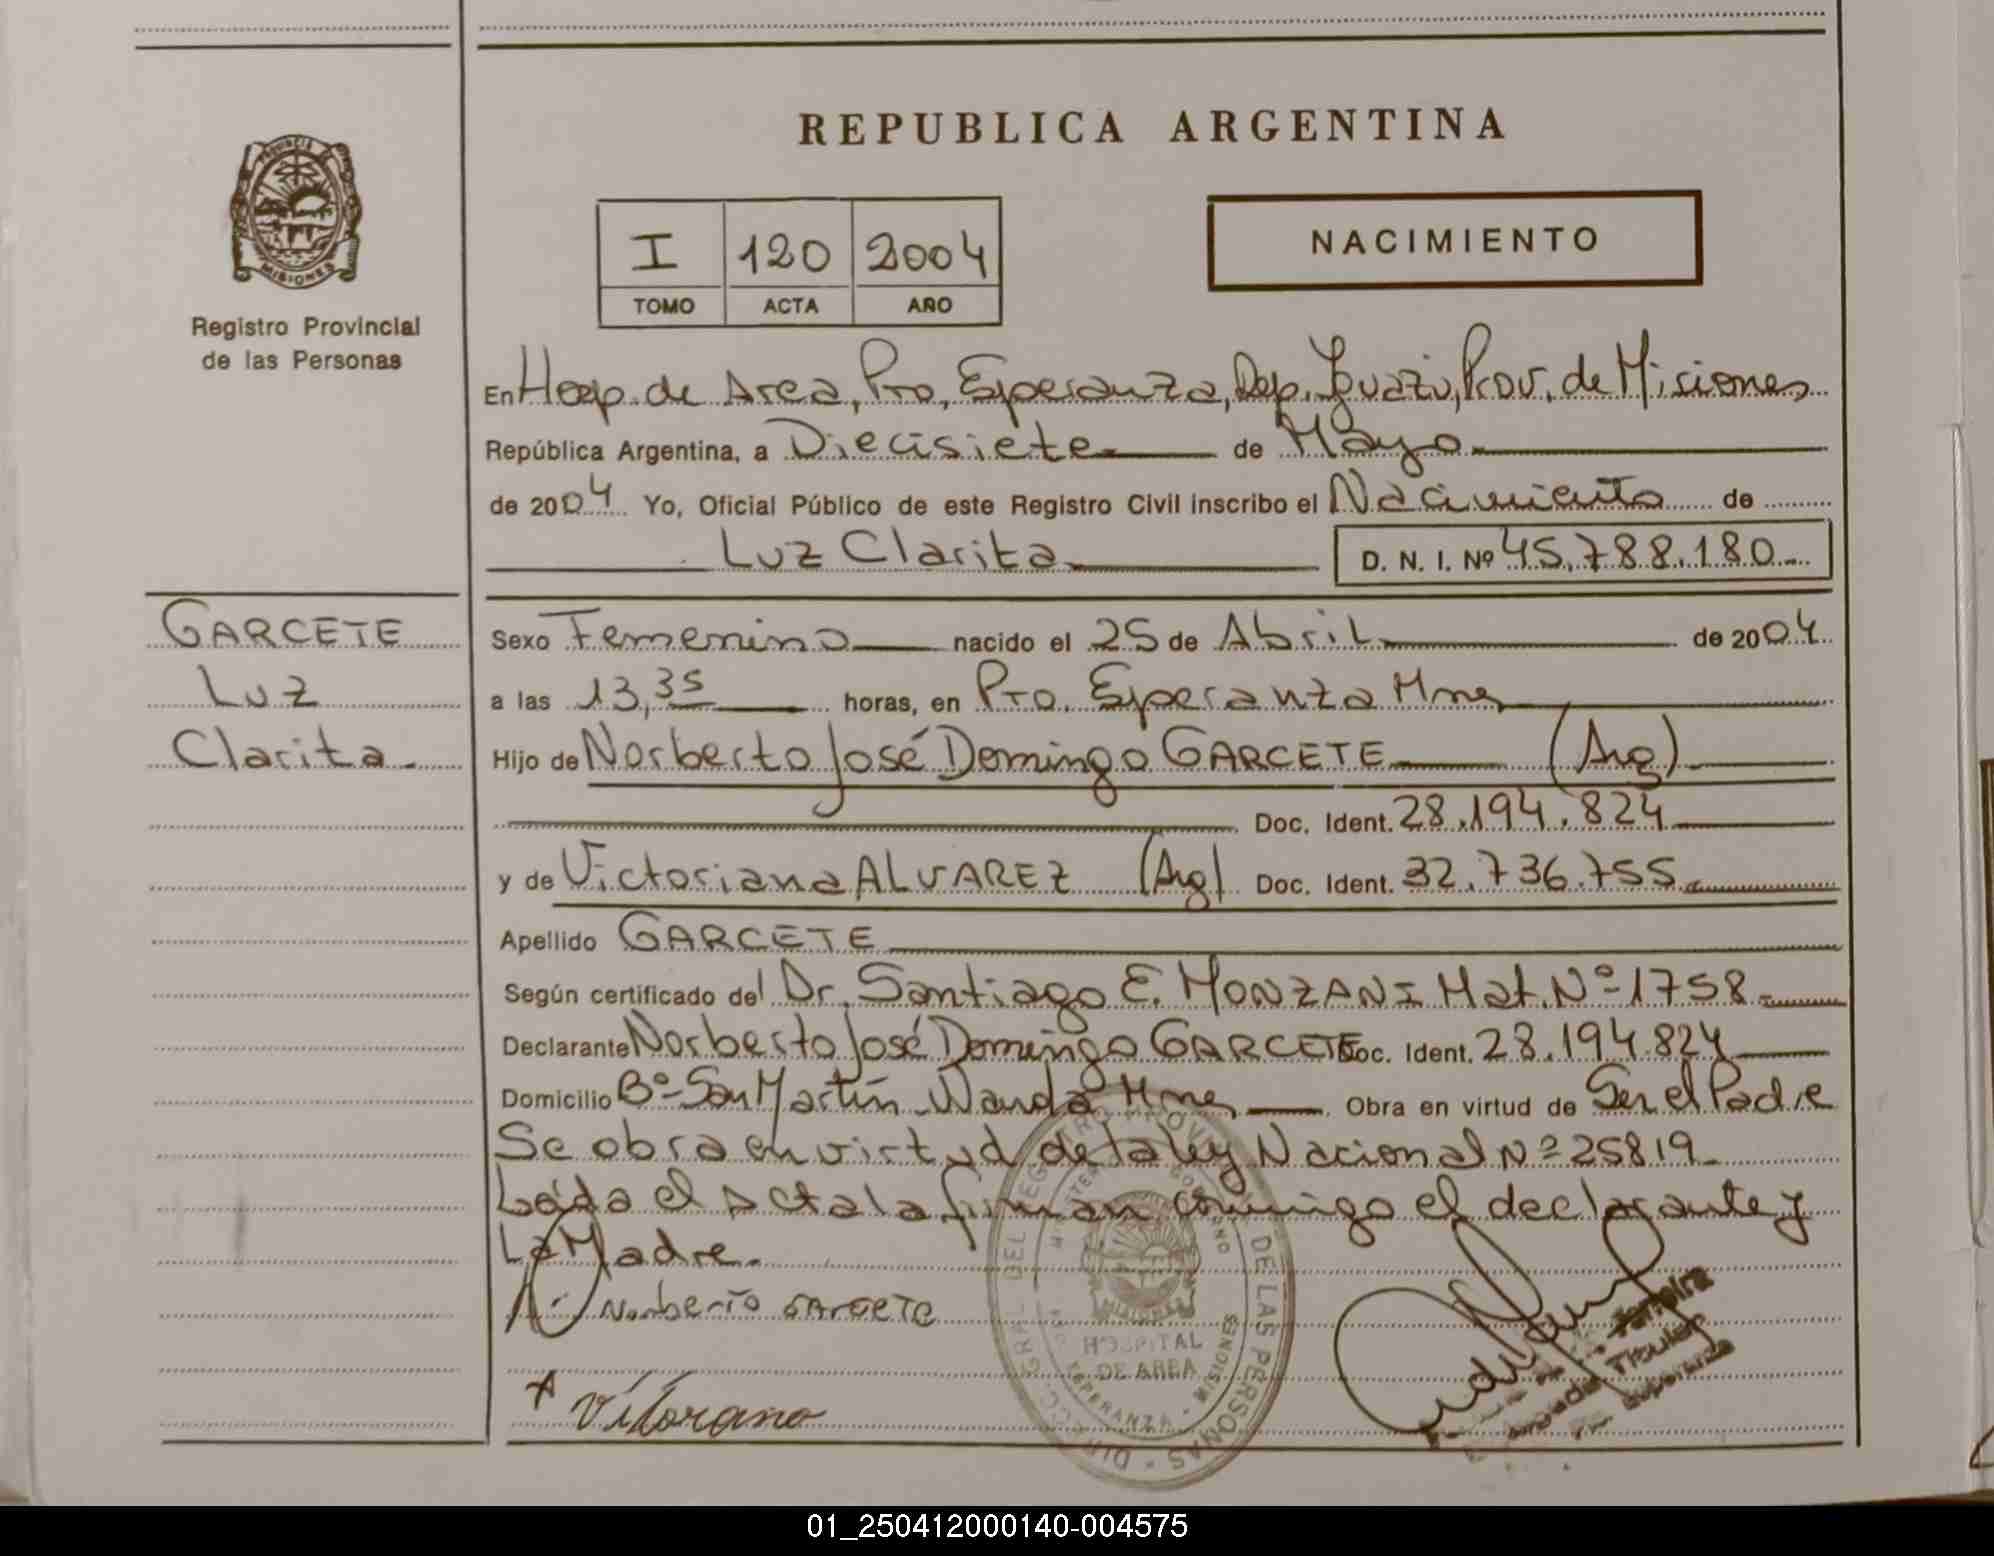 REPUBLICA ARGENTINA
PROVINCIA DE
MISIONES
Registro Provincial
de las Personas
I 120 2004
TOMO ACTA AÑO
NACIMIENTO
En Hosp. de Area, Pto. Esperanza, Dep. Iguazú, Prov. de Misiones
República Argentina, a Diecisiete de Mayo
de 2004 Yo, Oficial Público de este Registro Civil inscribo el Nacimiento de
Luz Clarita D. N. I. Nº 45.788.180
GARCETE
Luz
Clarita.
Sexo Femenino nacido el 25 de Abril de 2004
a las 13,35 horas, en Pto. Esperanza Mnes
Hijo de Norberto José Domingo GARCETE (Arg)
Doc. Ident. 28.194.824
y de Victoriana ALVAREZ (Arg) Doc. Ident. 32.736.755
Apellido GARCETE
Según certificado del Dr. Santiago E. MONZANI Mat. Nº 1758
Declarante Norberto José Domingo GARCETE Doc. Ident. 28.194.824
Domicilio Bº San Martín Wanda Mnes Obra en virtud de Ser el Padre
Se obra en virtud de la ley Nacional Nº 25819
Leída el Acta la firman conmigo el declarante y
La Madre.
Norberto GARCETE
Vitorano
DIRECC. GRAL. DEL REGISTRO PROVINCIAL DE LAS PERSONAS
MISIONES
HOSPITAL
DE AREA
ESPERANZA - MISIONES
Ferreira
Titular
Esperanza
01_250412000140-004575